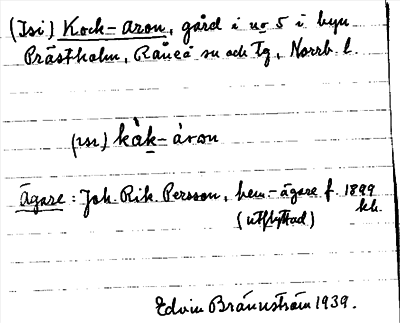 (Isi) Kock-Aron, gård i no 5 i byn
Prästholm, Råneå sn och tg, Norrb. l.
(ısı) kàk-áron
Ägare: Joh. Rik. Persson, hem.-ägare f. 1899
(utflyttad) kh.
Edvin Brännström 1939.